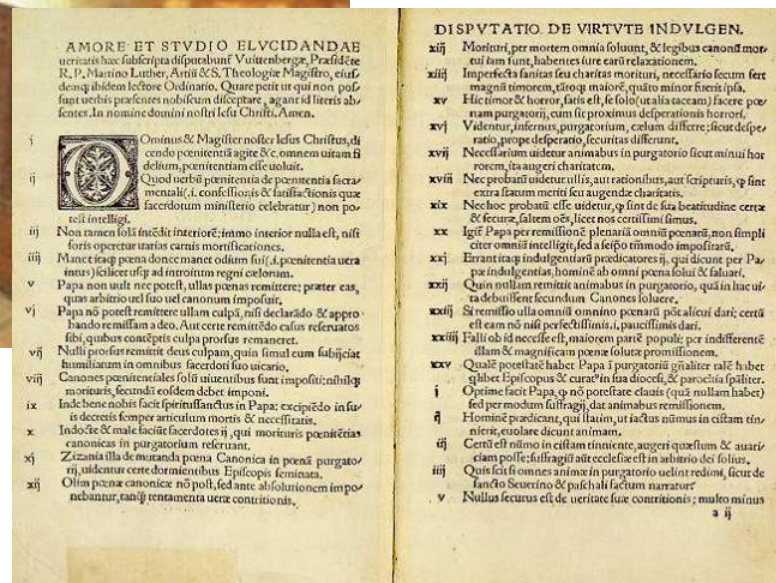 AMORE ET STVDIO ELVCIDANDAE
ueritatis hæc subscripta disputabunť Vuittenbergæ, Præsidēte
R. P. Martino Luther, Artiū & S. Theologiæ Magistro, eius-
demq; ibidem lectore Ordinario. Quare petit ut qui non pos-
sunt uerbis præsentes nobiscum disceptare, agant id literis ab-
sentes. In nomine domini nostri Iesu Christi. Amen.
i DOminus & Magister noster Iesus Christus, di
cendo pœnitentiā agite &c. omnem uitam fi
delium, pœnitentiam esse uoluit.
ij Quod uerbū pœnitentia de pœnitentia sacra-
mentali (.i. confessionis & satisfactionis quæ
sacerdotum ministerio celebratur) non po-
test intelligi.
iij Non tamen solā intēdit interiorē: immo interior nulla est, nisi
foris operetur uarias carnis mortificationes.
iiij Manet itaq; pœna donec manet odium sui (.i. pœnitentia uera
intus) scilicet usq; ad introitum regni cælorum.
v Papa non uult nec potest, ullas pœnas remittere: præter eas,
quas arbitrio uel suo uel canonum imposuit.
vj Papa nō potest remittere ullam culpā, nisi declarādo & appro-
bando remissam a deo. Aut certe remittēdo casus reseruatos
sibi, quibus contēptis culpa prorsus remaneret.
vij Nulli prorsus remittit deus culpam, quin simul eum subijciat
humiliatum in omnibus sacerdoti suo uicario.
viij Canones pœnitentiales solū uiuentibus sunt impositi: nihilq;
morituris, secundū eosdem debet imponi.
ix Inde bene nobis facit spiritussanctus in Papa: excipiēdo in su-
is decretis semper articulum mortis & necessitatis.
x Indocte & male faciūt sacerdotes ij, qui morituris pœnitētias
canonicas in purgatorium reseruant.
xj Zizania illa de mutanda pœna Canonica in pœnā purgato-
rij, uidentur certe dormientibus Episcopis seminata.
xij Olim pœnæ canonicæ nō post, sed ante absolutionem impo-
nebantur, tanq̄ tentamenta ueræ contritionis.
DISPVTATIO DE VIRTVTE INDVLGEN.
xiij Morituri, per mortem omnia soluunt, & legibus canonū mor-
tui iam sunt, habentes iure earū relaxationem.
xiiij Imperfecta sanitas seu charitas morituri, necessario secum fert
magnū timorem, tātoq; maiorē, quāto minor fuerit ipsa.
xv Hic timor & horror, satis est, se solo (ut alia taceam) facere pœ-
nam purgatorij, cum sit proximus desperationis horrori.
xvj Videntur, infernus, purgatorium, cælum differre: sicut despe-
ratio, prope desperatio, securitas differunt.
xvij Necessarium uidetur animabus in purgatorio sicut minui hor
rorem, ita augeri charitatem.
xviij Nec probatū uidetur ullis, aut rationibus, aut scripturis, q̄ sint
extra statum meriti seu augendæ charitatis.
xix Nec hoc probatū esse uidetur, q̄ sint de sua beatitudine certæ
& securæ, saltem oēs, licet nos certissimi simus.
xx Igiť Papa per remissionē plenariā omniū pœnarū, non simpli
citer omniū intelligit, sed a seipso tm̄modo impositarū.
xxj Errant itaq; indulgentiarū prædicatores ij, qui dicunt per Pa-
pæ indulgentias, hominē ab omni pœna solui & saluari.
xxij Quin nullam remittit animabus in purgatorio, quā in hac ui-
ta debuissent secundum Canones soluere.
xxiij Si remissio ulla omniū omnino pœnarū pōt alicui dari; certū
est eam nō nisi perfectissimis .i. paucissimis dari.
xxiiij Falli ob id necesse est, maiorem partē populi: per indifferentē
illam & magnificam pœnæ solutæ promissionem.
xxv Qualē potestatē habet Papa ī purgatoriū gn̄aliter talē habet
q̄libet Episcopus & curatꝰ in sua diocesi, & parochia sp̄aliter.
i Optime facit Papa, q̄ nō potestate clauis (quā nullam habet)
sed per modum suffragij, dat animabus remissionem.
ij Hominē prædicant, qui statim, ut iactus nūmus in cistam tin-
nierit, euolare dicunt animam.
iij Certū est nūmo in cistam tinniente, augeri quæstum & auari-
ciam posse: suffragiū aūt ecclesiæ est in arbitrio dei solius.
iiij Quis scit si omnes animæ in purgatorio uelint redimi, sicut de
sancto Seuerino & paschali factum narratur?
v Nullus securus est de ueritate suæ contritionis; multo minus
a ij